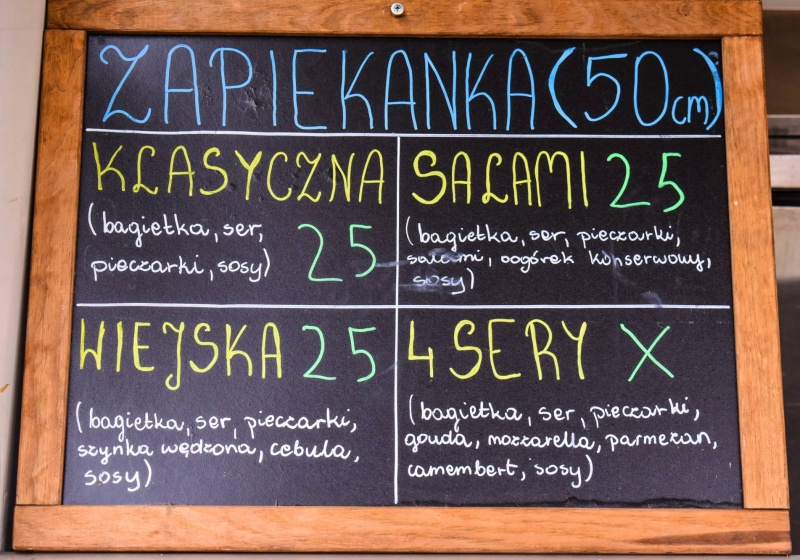 ZAPIEKANKA (50cm)
KLASYCZNA
(bagietka, ser,
pieczarki, sosy)
25
SALAMI 25
(bagietka, ser, pieczarki,
salami, oogórek konserwowy,
sosy)
WIEJSKA 25
(bagietka, ser, pieczarki,
szynka wędzona, cebula,
sosy)
4 SERY X
(bagietka, ser, pieczarki,
gouda, mozzarella, parmezan,
camembert, sosy)